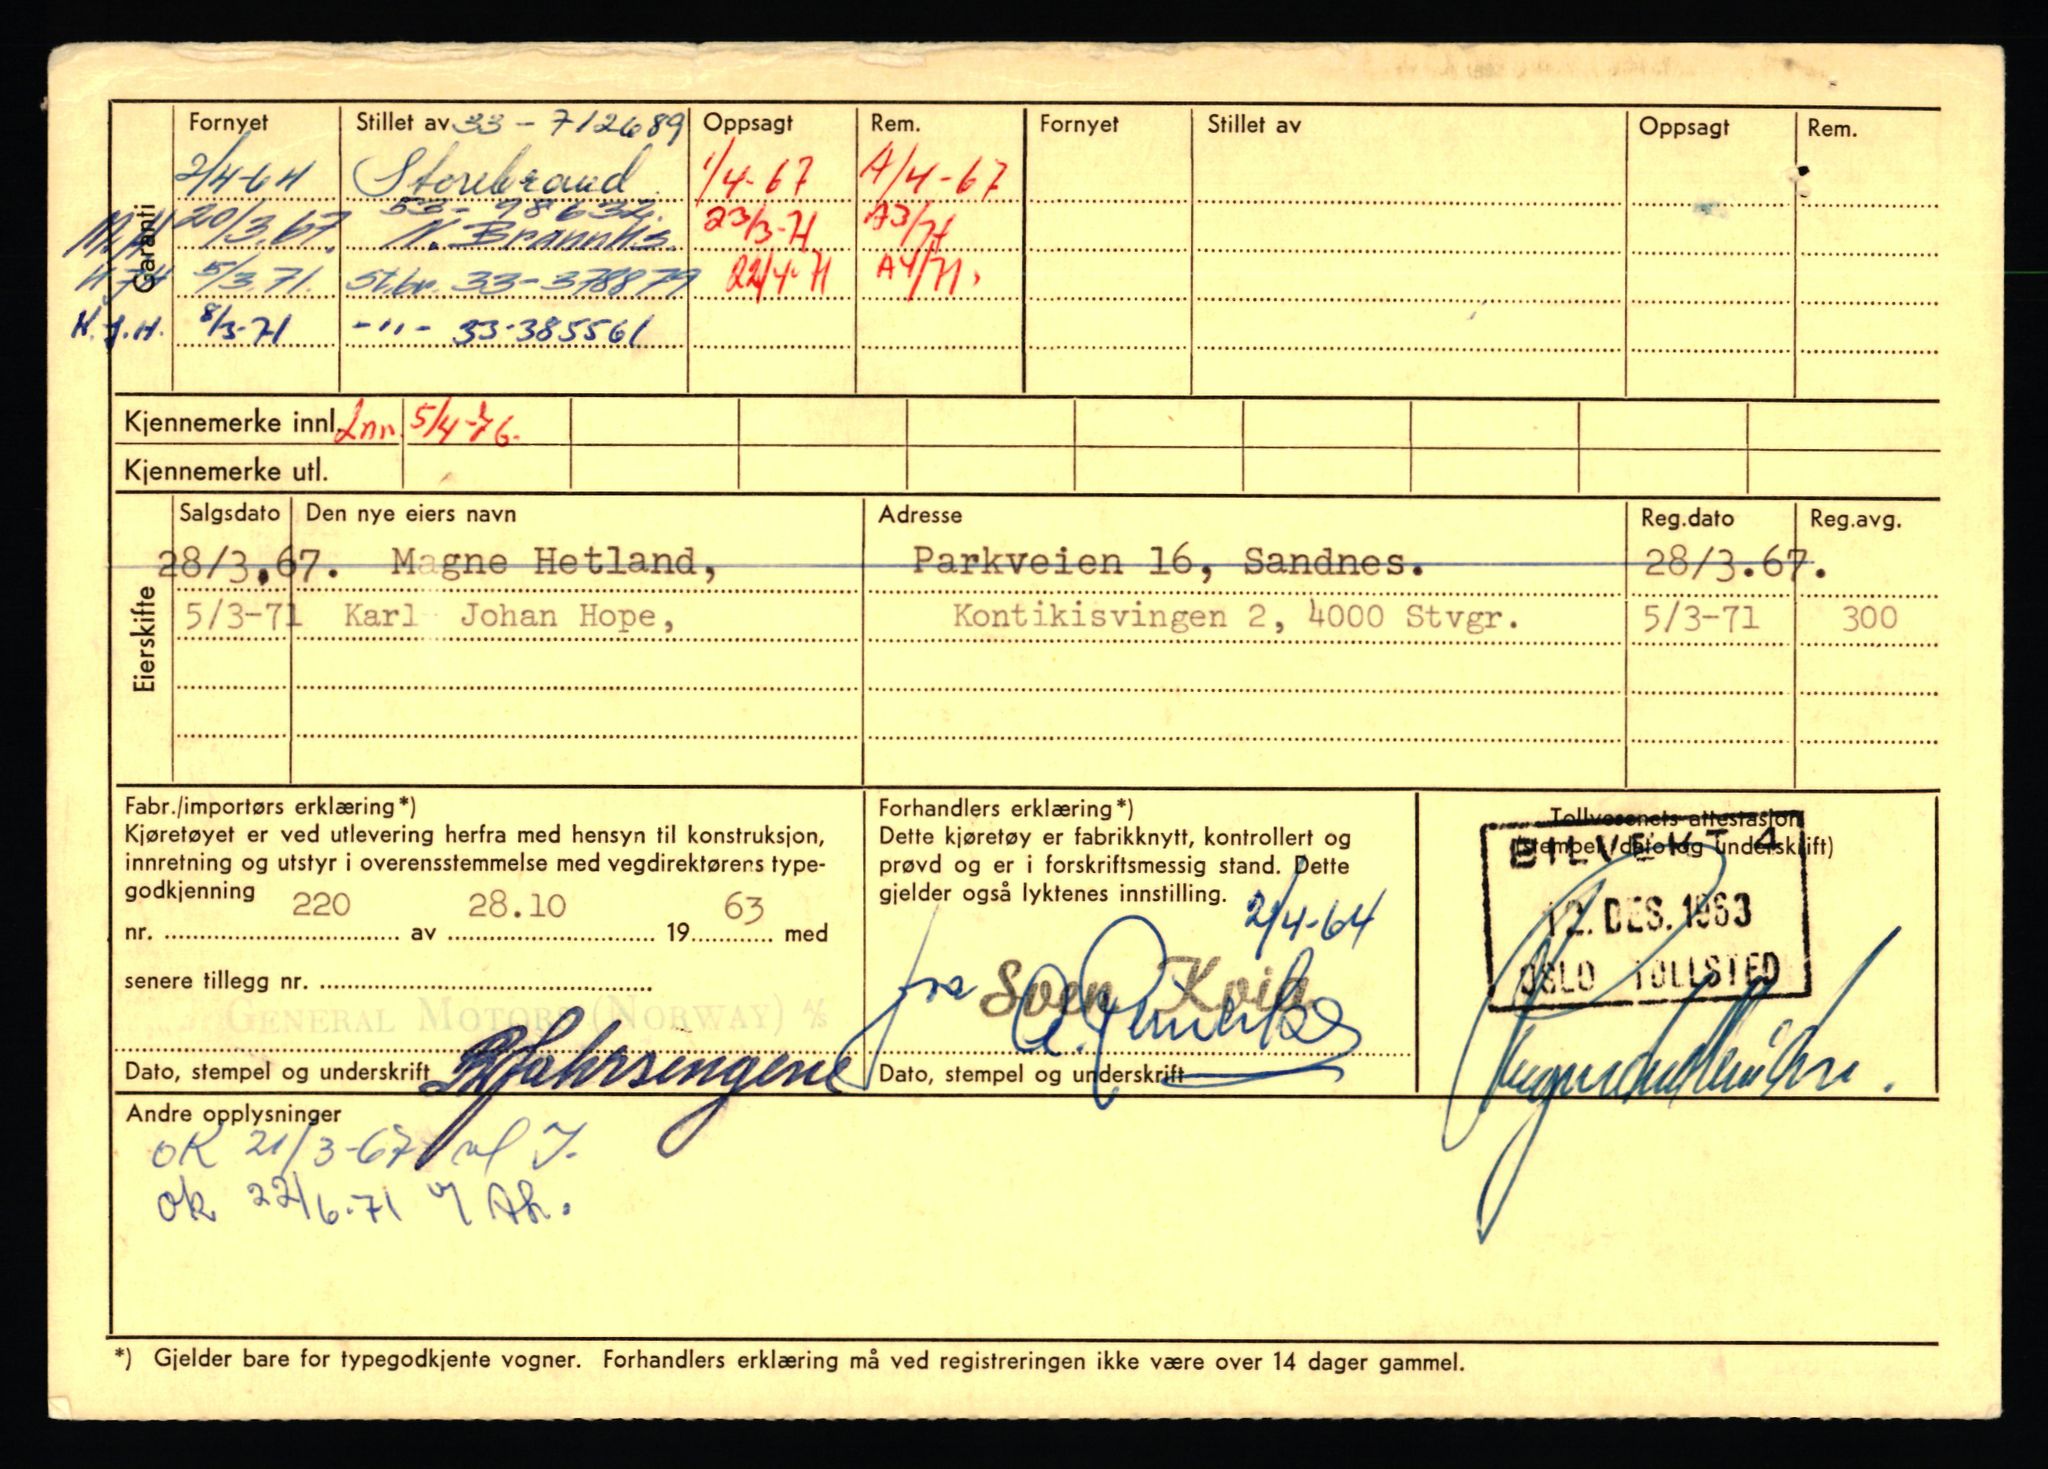 Fornyet Stillet av 33-712689 Oppsagt Rem. Fornyet Stillet av Oppsagt Rem.
Garanti
2/4-64 Storebrand 1/4-67 A/4-67
53-98632.
20/3.67. N. Brannks. 23/3-71 A3/71
5/3.71. St.br. 33-378879 22/4-71 A4/71.
K.J.H. 8/3-71 -"- 33-385561
Kjennemerke innl. Inn. 5/4-76.
Kjennemerke utl.
Eierskifte
Salgsdato Den nye eiers navn Adresse Reg.dato Reg.avg.
28/3.67. Magne Hetland, Parkveien 16, Sandnes. 28/3.67.
5/3-71 Karl Johan Hope, Kontikisvingen 2, 4000 Stvgr. 5/3-71 300
Fabr./importørs erklæring*)
Kjøretøyet er ved utlevering herfra med hensyn til konstruksjon,
innretning og utstyr i overensstemmelse med vegdirektørens type-
godkjenning
nr. 220 av 28.10 19 63 med
senere tillegg nr.
GENERAL MOTORS (NORWAY) A/S
Dato, stempel og underskrift
Forhandlers erklæring*)
Dette kjøretøy er fabrikknytt, kontrollert og
prøvd og er i forskriftsmessig stand. Dette
gjelder også lyktenes innstilling.
2/4-64
fra Sven Kvia
Dato, stempel og underskrift
Tollvesenets attestasjon
(stempel, dato og underskrift)
BILVEKT 4
12. DES. 1963
OSLO TOLLSTED
Andre opplysninger
OK 21/3-67
ok 22/6-71
*) Gjelder bare for typegodkjente vogner. Forhandlers erklæring må ved registreringen ikke være over 14 dager gammel.